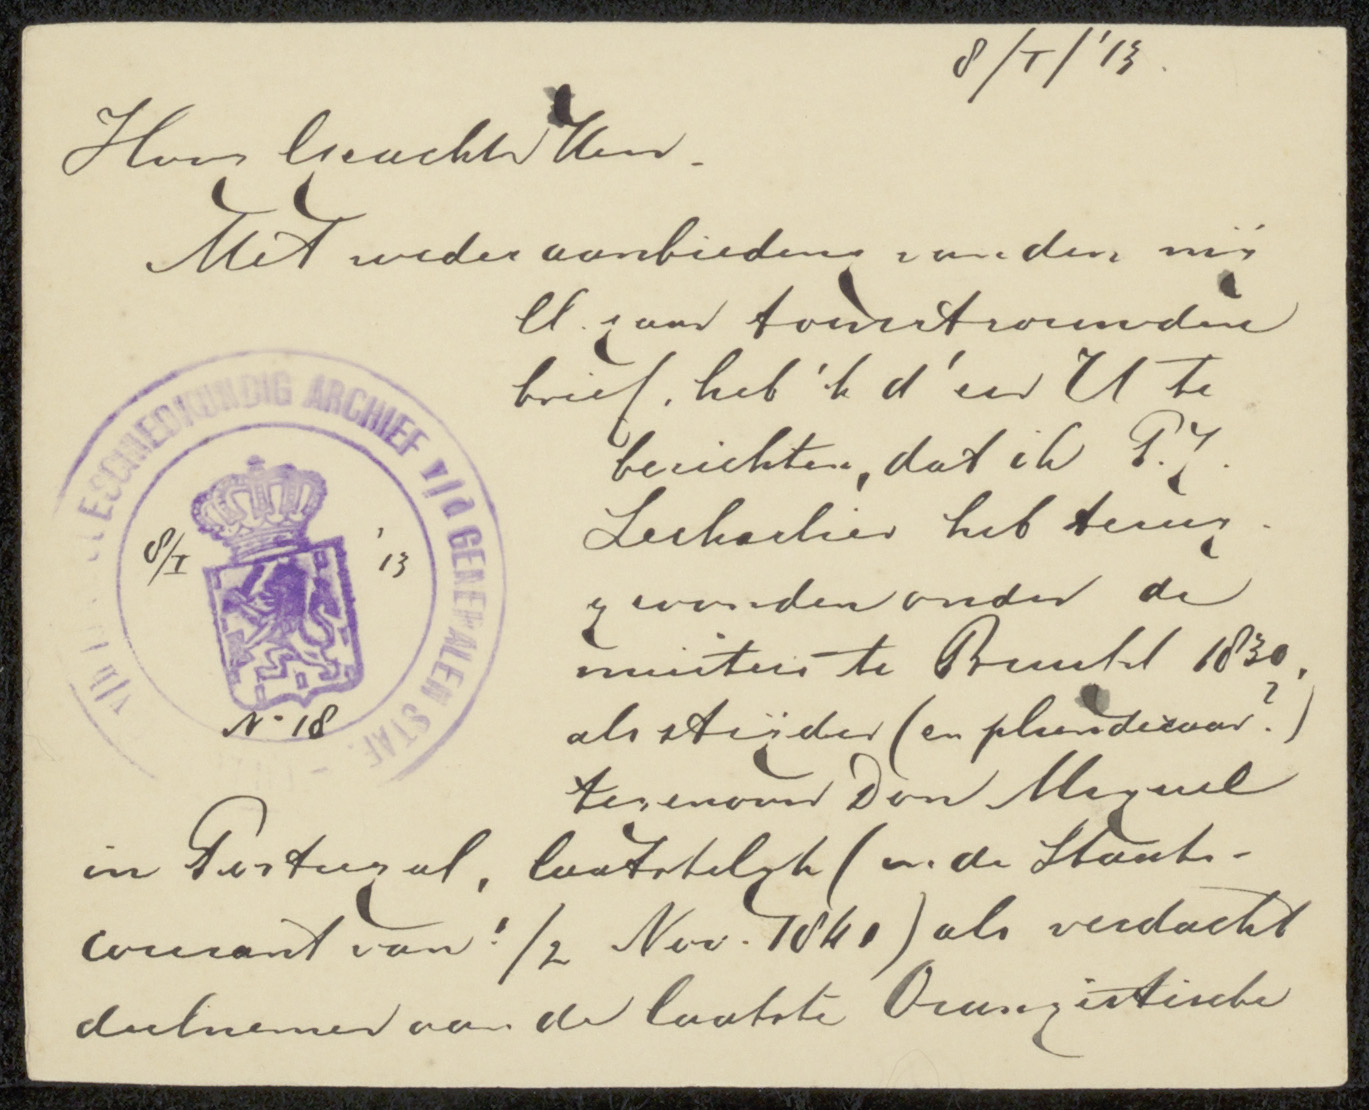 8/I/'13.
Hoog Geachte Heer.
Met wederaanbieding van den mij
U. zaam toevertrouwden
brief, heb 'k d' eer U te
berichten, dat ik P.J.
Lecharlier heb terug-
gevonden onder de
muiters te Brussel 1830,
als strijder (en plunderaar?)
tegenover Don Miguel
in Portugal, laatstelijk (in de Staats-
courant van 1/2 Nov. 1841) als verdacht
deelnemer aan de laatste Orangistische
ESCHIEDKUNDIG ARCHIEF v/d GENERALEN STAF.
8/I '13
No 18